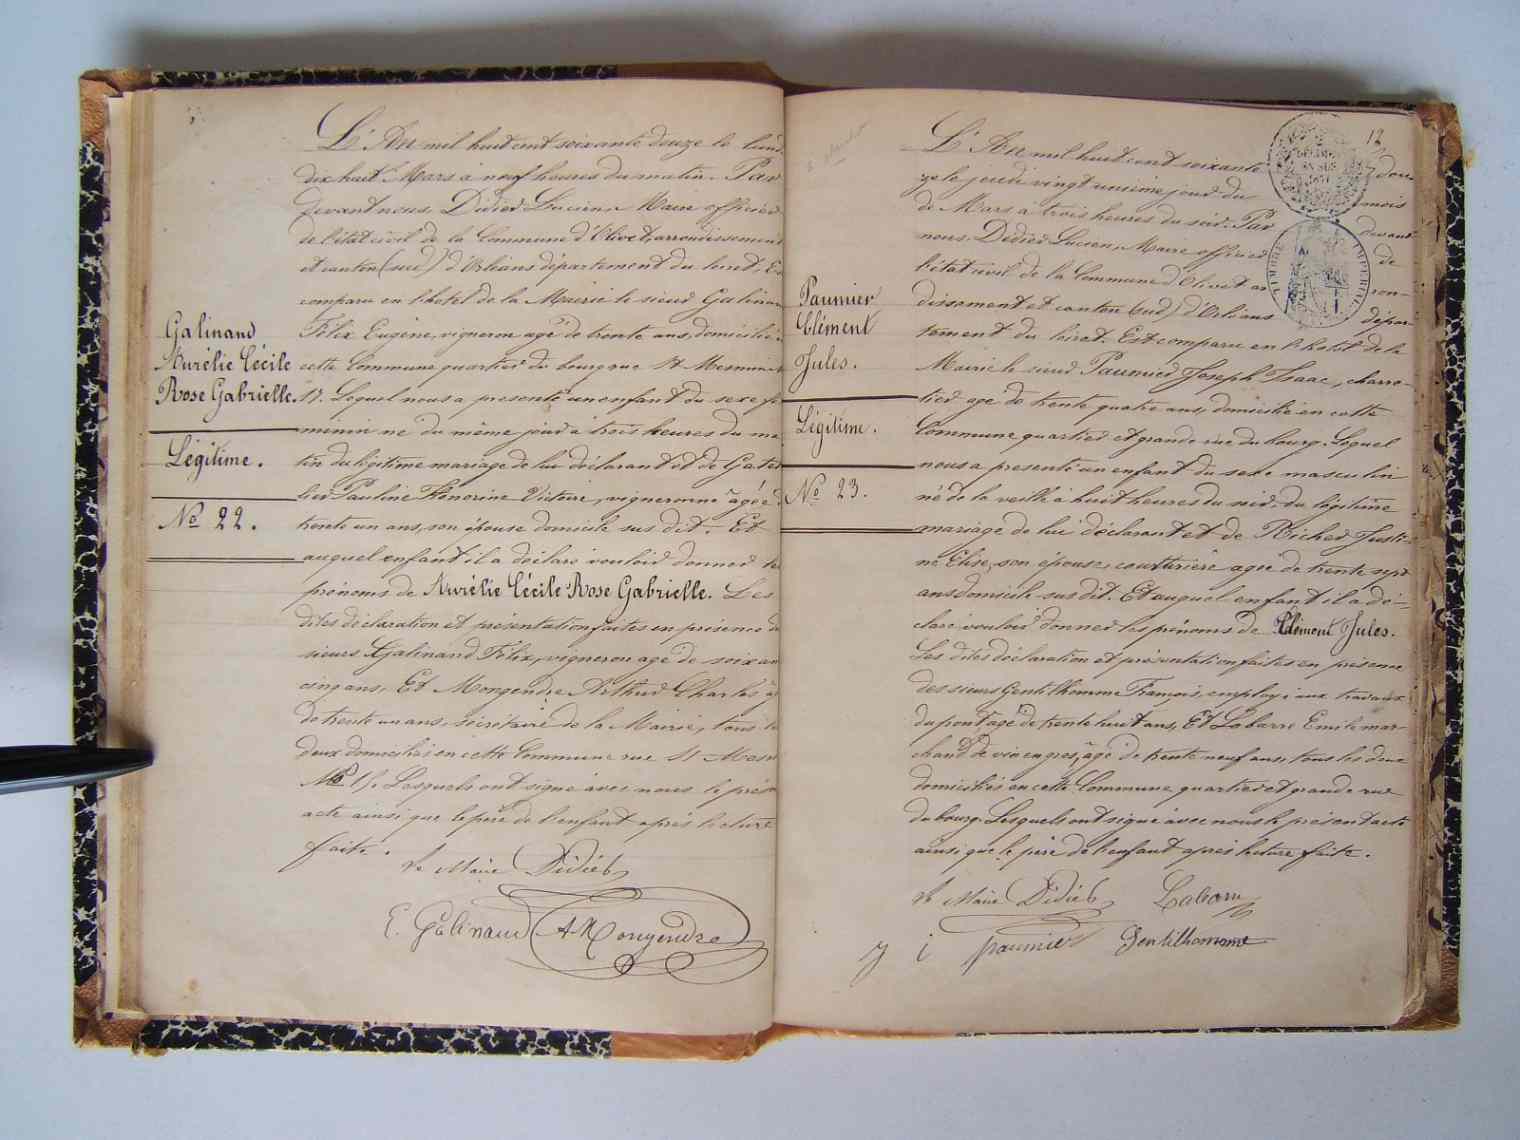 L'An mil huit cent soixante douze le lund
dix huit Mars à neuf heures du matin. Par
devant nous Didier Lucien Maire officier
de l'état civil de la Commune d'Olivet, arrondissement
et canton (sud) d'Orléans département du loiret, Est
comparu en l'hôtel de la Mairie le sieur Galinand
Félix Eugène, vigneron agé de trente ans, domicilié
cette Commune quartier du bourg rue St Mesmin
17. Lequel nous a présenté un enfant du sexe fé
minin né du même jour à trois heures du ma
tin du légitime mariage de lui déclarant et de Gatel
lier Pauline Honorine Victoire, vigneronne agée
trente un ans, son épouse domicile sus dit. Et
auquel enfant il a déclaré vouloir donner les
prénoms de Aurélie Cécile Rose Gabrielle. Les
dites déclaration et présentation faites en présence de
sieurs Galinand Félix, vigneron agé de soixan
cinq ans, Et Mongendre Arthur Charles
de trente un ans, secrétaire de la Mairie, tous
deux domiciliés en cette Commune rue St Mesm
No 15. Lesquels ont signé avec nous le prése
acte ainsi que le père de l'enfant après lecture
faite.
Galinand
Aurélie Cécile
Rose Gabrielle.
Légitime.
No 22.
Le Maire Didier
E. Galinand A Mongendre
13
L'An mil huit cent soixante dou
ze le jeudi vingt unième jour du mois
de Mars à trois heures du soir. Par devant
nous Didier Lucien Maire officier de
l'état civil de la Commune d'Olivet ar ron-
dissement et canton (sud) d'Orléans dépar-
tement du loiret. Est comparu en l'hotel de la
Mairie le sieur Paumier Joseph Isaac, charre-
tier agé de trente quatre ans, domicilié en cette
Commune quartier et grande rue du bourg. Lequel
nous a présenté un enfant du sexe masculin
né de la veille à huit heures du soir, du légitime
mariage de lui déclarant et de Richer Justi-
ne Elise, son épouse, couturière agée de trente sept
ans domicile sus dit. Et auquel enfant il a dé-
claré vouloir donner les prénoms de Clément Jules.
Les dites déclaration et présentation faites en présence
des sieurs Gentilhomme François, employé aux travaux
du pont agé de trente huit ans, Et Labarre Emile mar-
chand de vinaigres, agé de trente neuf ans, tous les deux
domiciliés en cette Commune quartier et grande rue
du bourg. Lesquels ont signé avec nous le présent acte
ainsi que le père de l'enfant après lecture faite.
Paumier
Clément
Jules.
Légitime.
No 23.
Le Maire Didier Labarre
y i paumier Gentilhomme
TIMBRE IMPERIAL